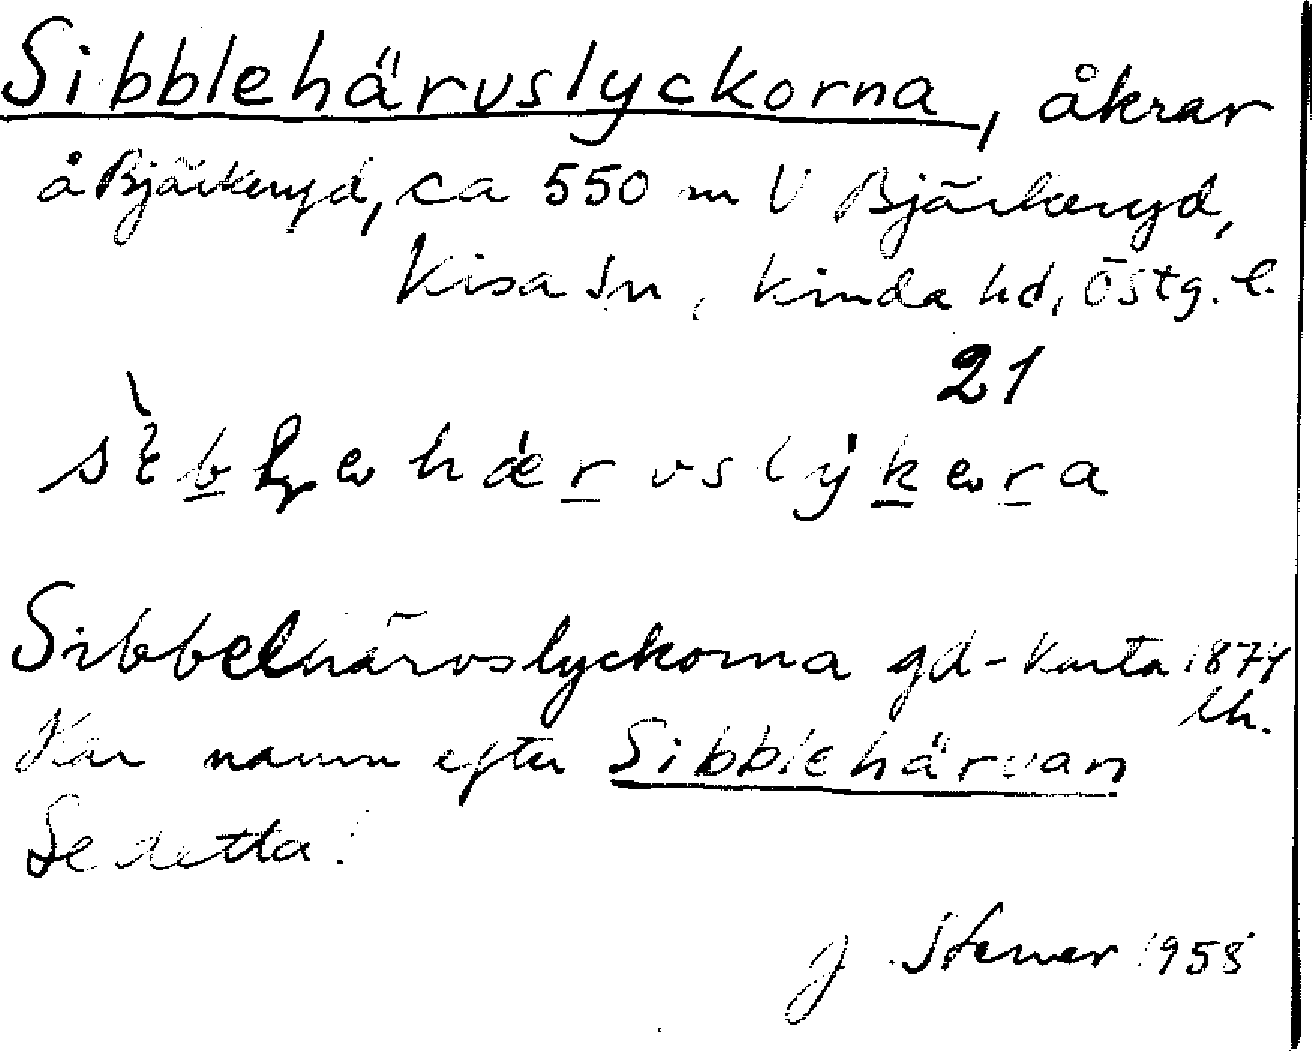 Sibblehärvslyckorna, åkrar
å Bjärkeryd, ca 550 m V Bjärkeryd,
Kisa sn, Kinda hd, Östg. l.
21
Sibbelhärvslyckorna gd-karta 1874
lh.
Har namn efter Sibblehärvan
Se detta!
J Stener 1958